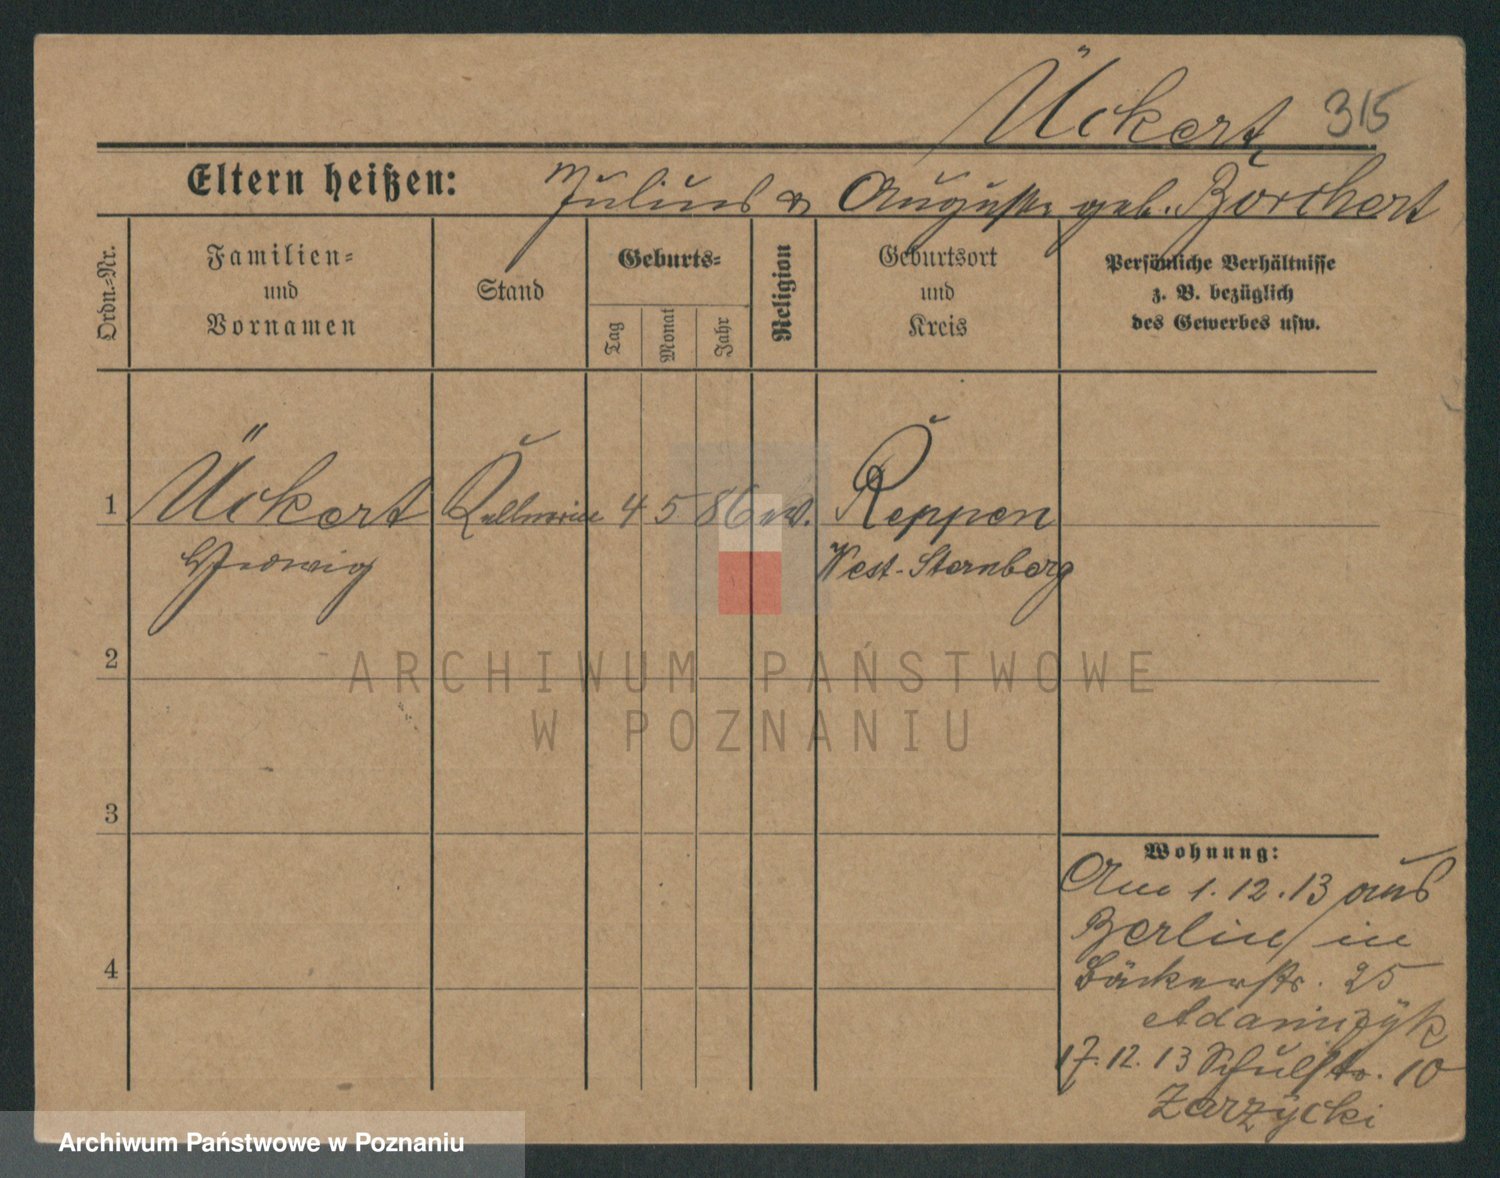 Ückert, 315
Eltern heißen: Julius & Auguste geb. Borchert
Ordn.-Nr.
Familien-
und
Vornamen
Stand
Geburts-
Tag
Monat
Jahr
Religion
Geburtsort
und
Kreis
Persönliche Verhältnisse
z. B. bezüglich
des Gewerbes usw.
1 Ückert Kellnerin 4 5 86 ev. Reppen
Hedwig West-Sternberg
2
ARCHIWUM PAŃSTWOWE
W POZNANIU
3
4
Wohnung:
Am 1.12.13 aus
Berlin in
Bäckerstr. 25
Adamczyk
17.12.13 Schulstr. 10
Zarzycki
Archiwum Państwowe w Poznaniu